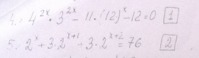 4. 4^{2x} · 3^{2x} - 11 · (12)^x - 12 = 0 1
5. 2^x + 3 · 2^{x+1} + 3 · 2^{x+2} = 76 2